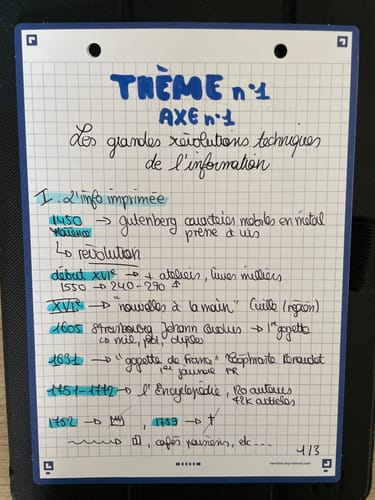 THÈME n°1
AXE n°1
Les grandes révolutions techniques
de l'information
I - L'info imprimée
1450 → gutenberg caractères mobiles en métal
Mayence presse à vis
↳ révolution
début XVIe → + ateliers, livres milliers
1550 → 240-290 ↑
XVIe → "nouvelles à la main" (ville/région)
1605 Strasbourg Johann Carolus → 1re gazette
↳ mil, pol, diplo
1631 → "gazette de France" Théophraste Renaudot
1er journal FR
1751-1772 → l'Encyclopédie, 120 auteurs
72k articles
1752 → , 1759 → †
, cafés parisiens, etc...
1/3